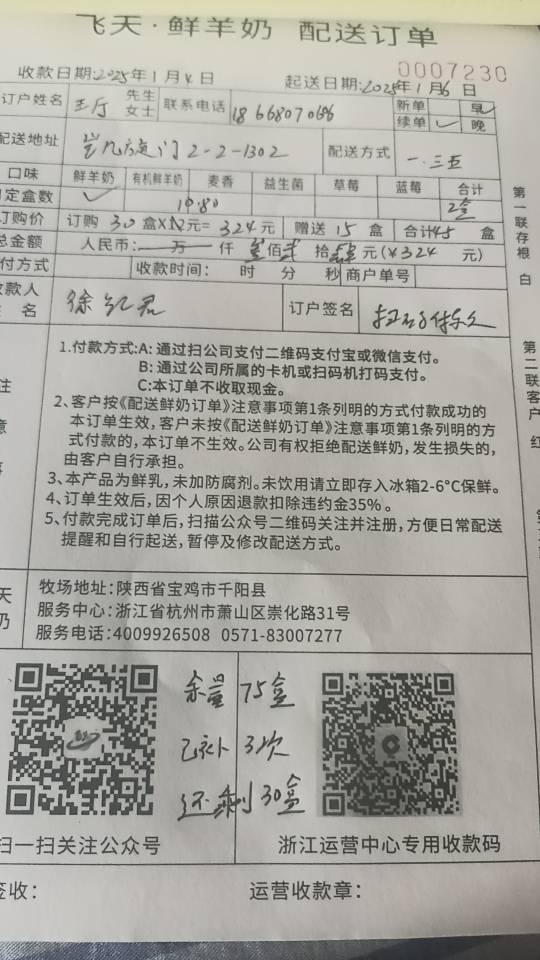 飞天·鲜羊奶 配送订单
0007230
收款日期:2025年1月4日 起送日期:2025年1月6日
订户姓名 先生 女士 联系电话 新单 早✓
续单✓ 晚
配送地址 2-2-1302 配送方式 一.三五
口味 鲜羊奶 有机鲜羊奶 麦香 益生菌 草莓 蓝莓 合计
定盒数 ✓ 2盒
10.80
订购价 订购30盒X 元=324元 赠送15盒 合计45盒
总金额 人民币: 万 仟 佰 拾 元(¥324 元)
付方式 收款时间: 时 分 秒 商户单号
收款人
签名 订户签名
1.付款方式:A: 通过扫公司支付二维码支付宝或微信支付。
B: 通过公司所属的卡机或扫码机打码支付。
C:本订单不收取现金。
2、客户按《配送鲜奶订单》注意事项第1条列明的方式付款成功的
本订单生效,客户未按《配送鲜奶订单》注意事项第1条列明的方
式付款的,本订单不生效。公司有权拒绝配送鲜奶,发生损失的,
由客户自行承担。
3、本产品为鲜乳,未加防腐剂。未饮用请立即存入冰箱2-6°C保鲜。
4、订单生效后,因个人原因退款扣除违约金35%。
5、付款完成订单后,扫描公众号二维码关注并注册,方便日常配送
提醒和自行起送,暂停及修改配送方式。
牧场地址:陕西省宝鸡市千阳县
服务中心:浙江省杭州市萧山区崇化路31号
服务电话:4009926508 0571-83007277
余量 75盒
已补 3次
还剩30盒
扫一扫关注公众号 浙江运营中心专用收款码
签收: 运营收款章:
第一联存根 白
第二联客户 红